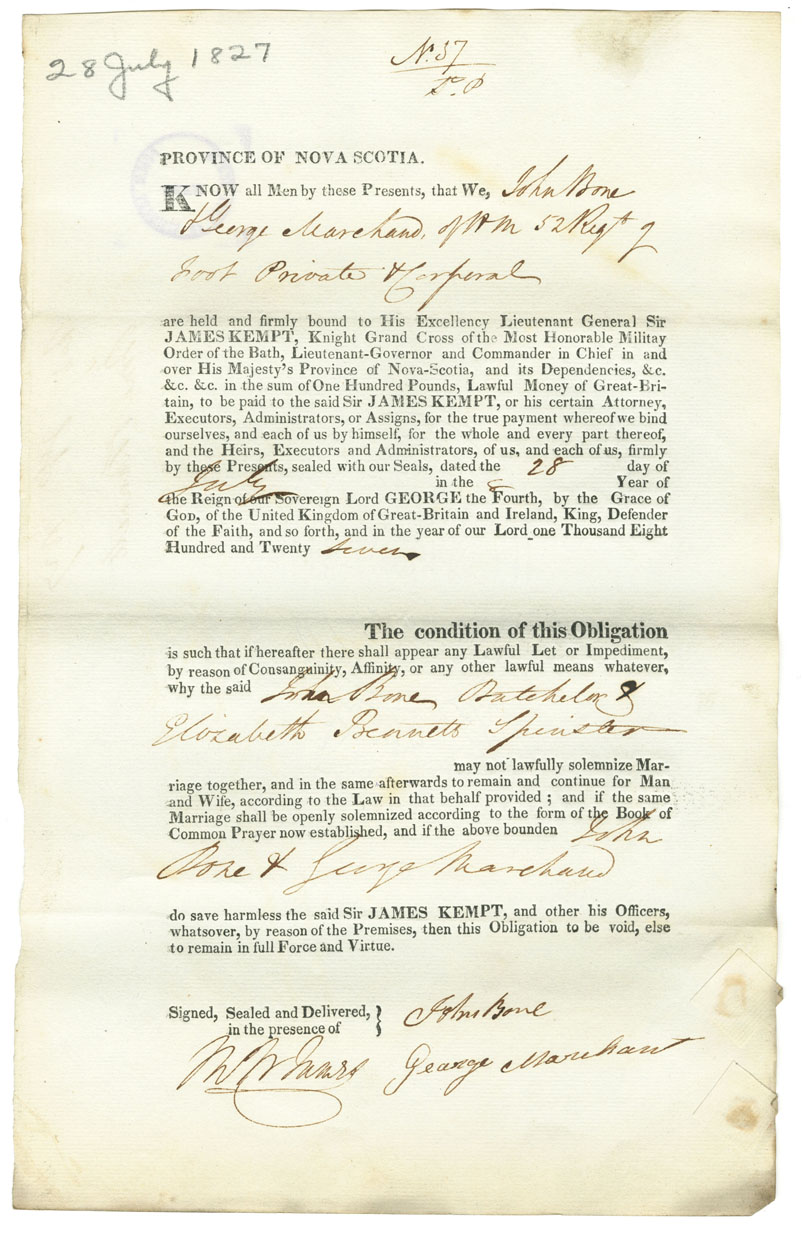 28 July 1827
No. 57
PROVINCE OF NOVA SCOTIA.
KNOW all Men by these Presents, that We, John Bone
& George Marchand, of H M 52 Regt of
Foot Private & Corporal
are held and firmly bound to His Excellency Lieutenant General Sir
JAMES KEMPT, Knight Grand Cross of the Most Honorable Militay
Order of the Bath, Lieutenant-Governor and Commander in Chief in and
over His Majesty's Province of Nova-Scotia, and its Dependencies, &c.
&c. &c. in the sum of One Hundred Pounds, Lawful Money of Great-Bri-
tain, to be paid to the said Sir JAMES KEMPT, or his certain Attorney,
Executors, Administrators, or Assigns, for the true payment whereof we bind
ourselves, and each of us by himself, for the whole and every part thereof,
and the Heirs, Executors and Administrators, of us, and each of us, firmly
by these Presents, sealed with our Seals, dated the 28 day of
July in the 8 Year of
the Reign of our Sovereign Lord GEORGE the Fourth, by the Grace of
GOD, of the United Kingdom of Great-Britain and Ireland, King, Defender
of the Faith, and so forth, and in the year of our Lord one Thousand Eight
Hundred and Twenty seven
The condition of this Obligation
is such that if hereafter there shall appear any Lawful Let or Impediment,
by reason of Consanguinity, Affinity, or any other lawful means whatever,
why the said John Bone Batchelor &
Elizabeth Bennett Spinster
may not lawfully solemnize Mar-
riage together, and in the same afterwards to remain and continue for Man
and Wife, according to the Law in that behalf provided ; and if the same
Marriage shall be openly solemnized according to the form of the Book of
Common Prayer now established, and if the above bounden John
Bone & George Marchand
do save harmless the said Sir JAMES KEMPT, and other his Officers,
whatsover, by reason of the Premises, then this Obligation to be void, else
to remain in full Force and Virtue.
Signed, Sealed and Delivered, } John Bone
in the presence of
George Marchant